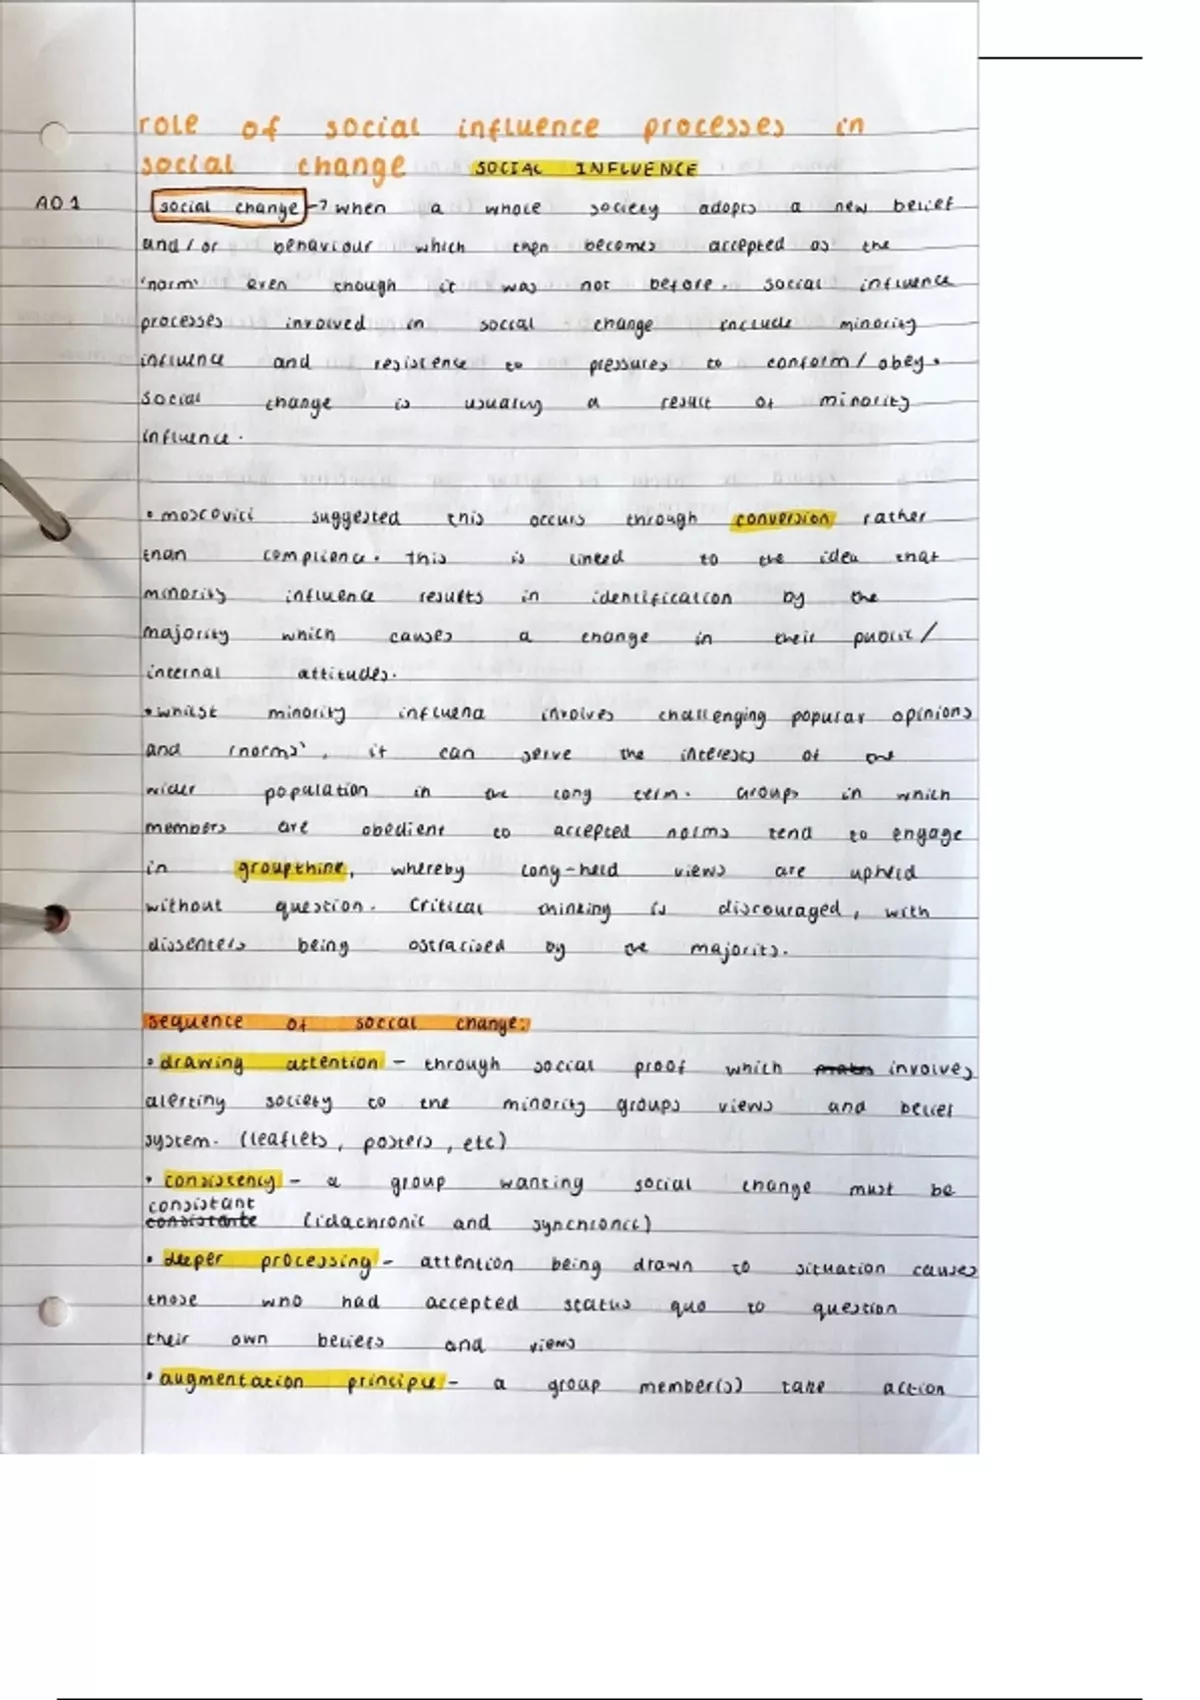 role of social influence processes in
social change SOCIAL INFLUENCE
AO1 social change → when a whole society adopts a new belief
and/or behaviour which then becomes accepted as the
'norm' even though it was not before. social influence
processes involved in social change include minority
influence and resistence to pressures to conform/obey.
social change is usually a result of minority
influence.
• moscovici suggested this occurs through conversion rather
than complience. this is linked to the idea that
minority influence results in identification by the
majority which causes a change in their public/
internal attitudes.
• whilst minority influence involves challenging popular opinions
and 'norms', it can serve the interests of the
wider population in the long term. Groups in which
members are obedient to accepted norms tend to engage
in groupthink, whereby long-held views are upheld
without question. Critical thinking is discouraged, with
dissenters being ostracised by the majority.
sequence of social change:
• drawing attention - through social proof which involves
alerting society to the minority groups views and belief
system. (leaflets, posters, etc)
• consistency - a group wanting social change must be
consistant
consistante (idachronic and synchronic)
• deeper processing - attention being drawn to situation causes
those who had accepted status quo to question
their own beliefs and views
• augmentation principle - a group member(s) take action